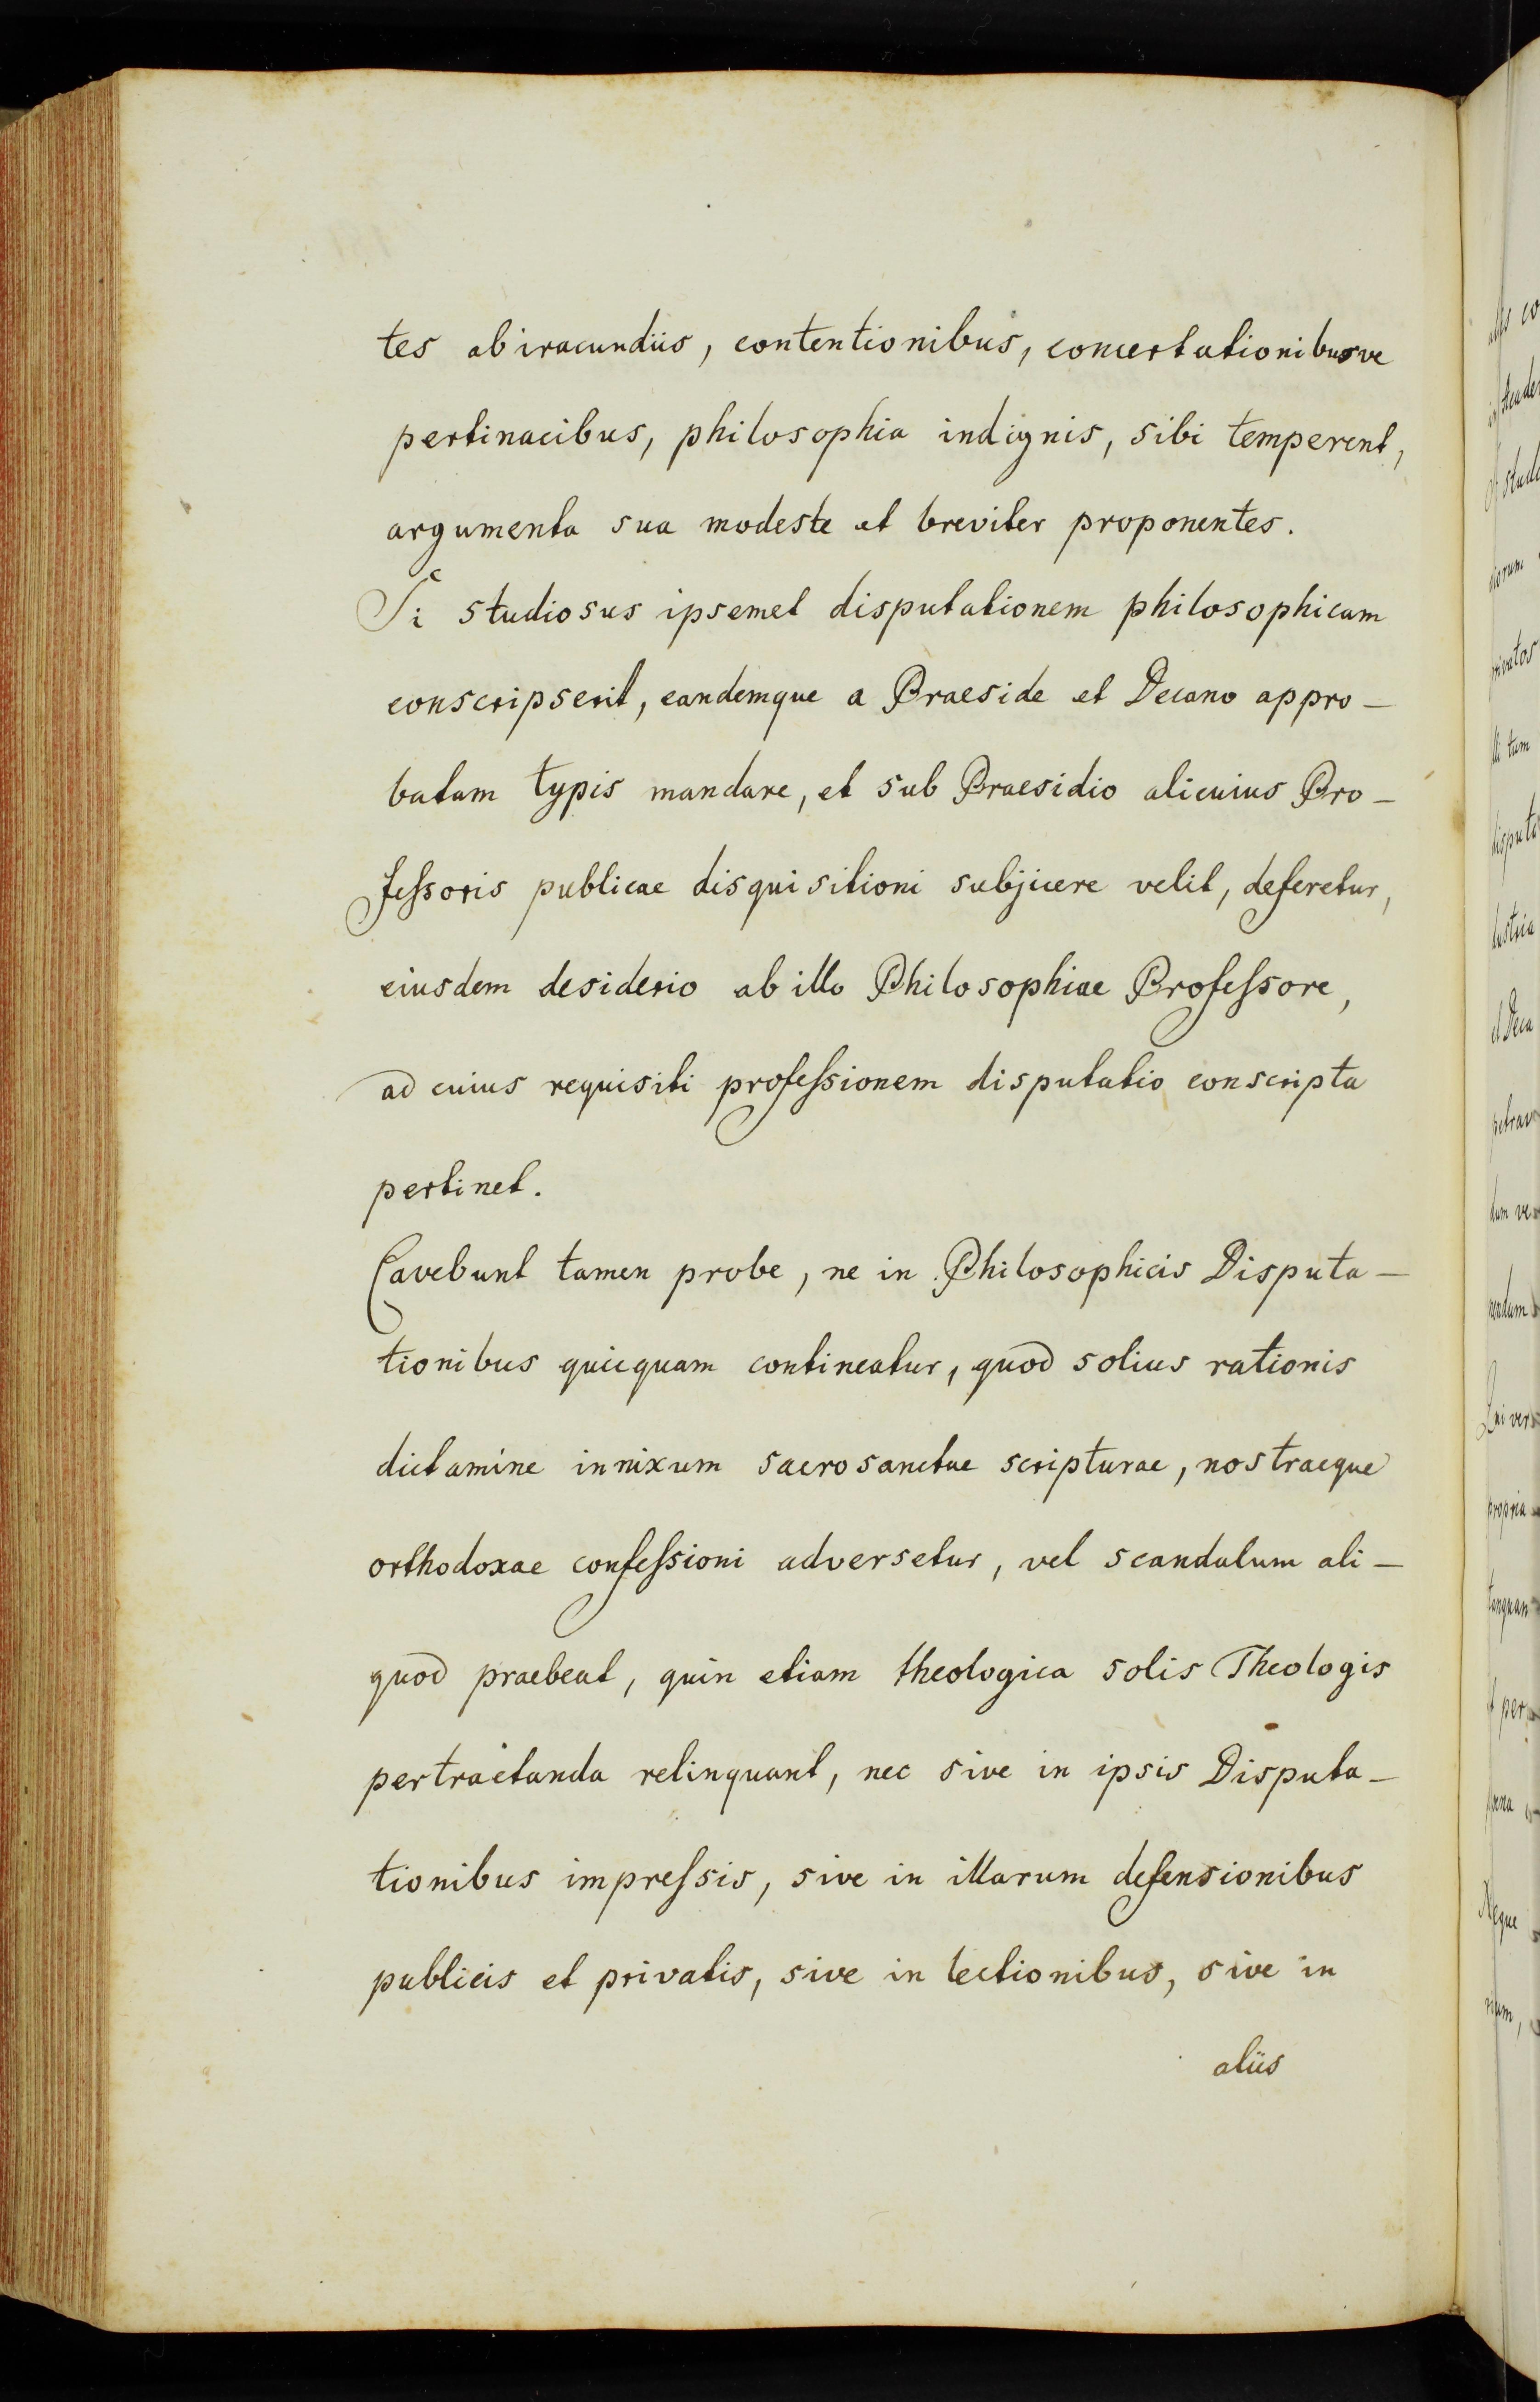 tes ab iracundiis, contentionibus, concertationibusve
pertinacibus, philosophia indignis, sibi temperent,
argumenta sua modeste et breviter proponentes.
Si studiosus ipsemet disputationem philosophicam
conscripserit, eandemque a Praeside et Decano appro-
batam typis mandare, et sub Praesidio alicuius Pro-
feſsoris publicae disquisitioni subjicere velit, deferetur,
eiusdem desiderio ab illo Philosophiae Profeſsore,
ad cuius requisiti profeſsionem disputatio conscripta
pertinet.
Cavebunt tamen probe, ne in Philosophicis Disputa-
tionibus quicquam contineatur, quod solius rationis
dictamine innixum sacrosanctae scripturae, nostraeque
orthodoxae confeſsioni adversetur, vel scandalum ali-
quod praebeat, quin etiam theologica solis Theologis
pertractanda relinquant, nec sive in ipsis Disputa-
tionibus impreſsis, sive in illarum defensionibus
publicis et privatis, sive in lectionibus, sive in
aliis